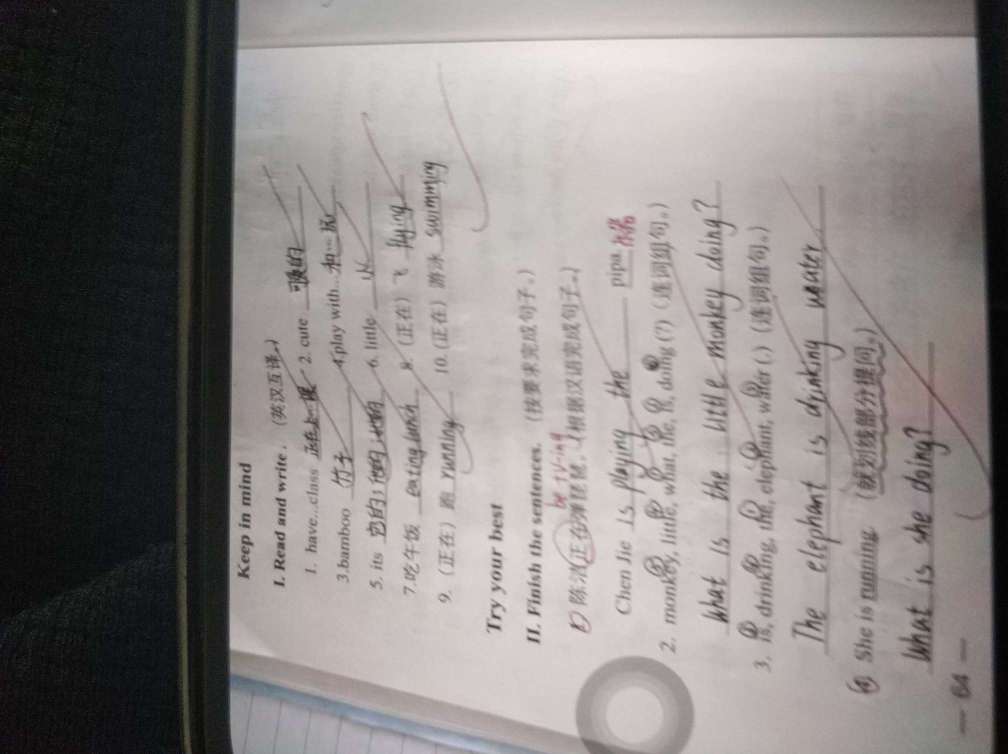 Keep in mind
I. Read and write. (英汉互译。)
1. have...class 正在上...课 2. cute 可爱的
3. bamboo 竹子 4. play with... 和...玩
5. its 它的; 6. little 小
7. 吃午饭 eating lunch 8. (正在) 飞 flying
9. (正在) 跑 running 10. (正在) 游泳 swimming
Try your best
II. Finish the sentences. (按要求完成句子。)
be+Ving
1. 陈洁正在弹琵琶。(根据汉语完成句子。)
Chen Jie is playing the pipa.
2. monkey, little, what, the, is, doing (?) (连词组句。)
What is the little monkey doing?
3. is, drinking, the, elephant, water (.) (连词组句。)
The elephant is drinking water.
4. She is running. (就划线部分提问。)
What is she doing?
— 64 —